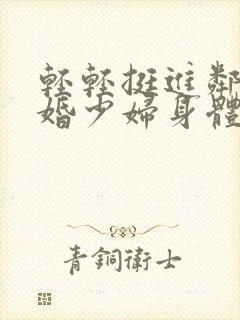 輕輕挺進鄰
婚少婦身體
青銅衛士